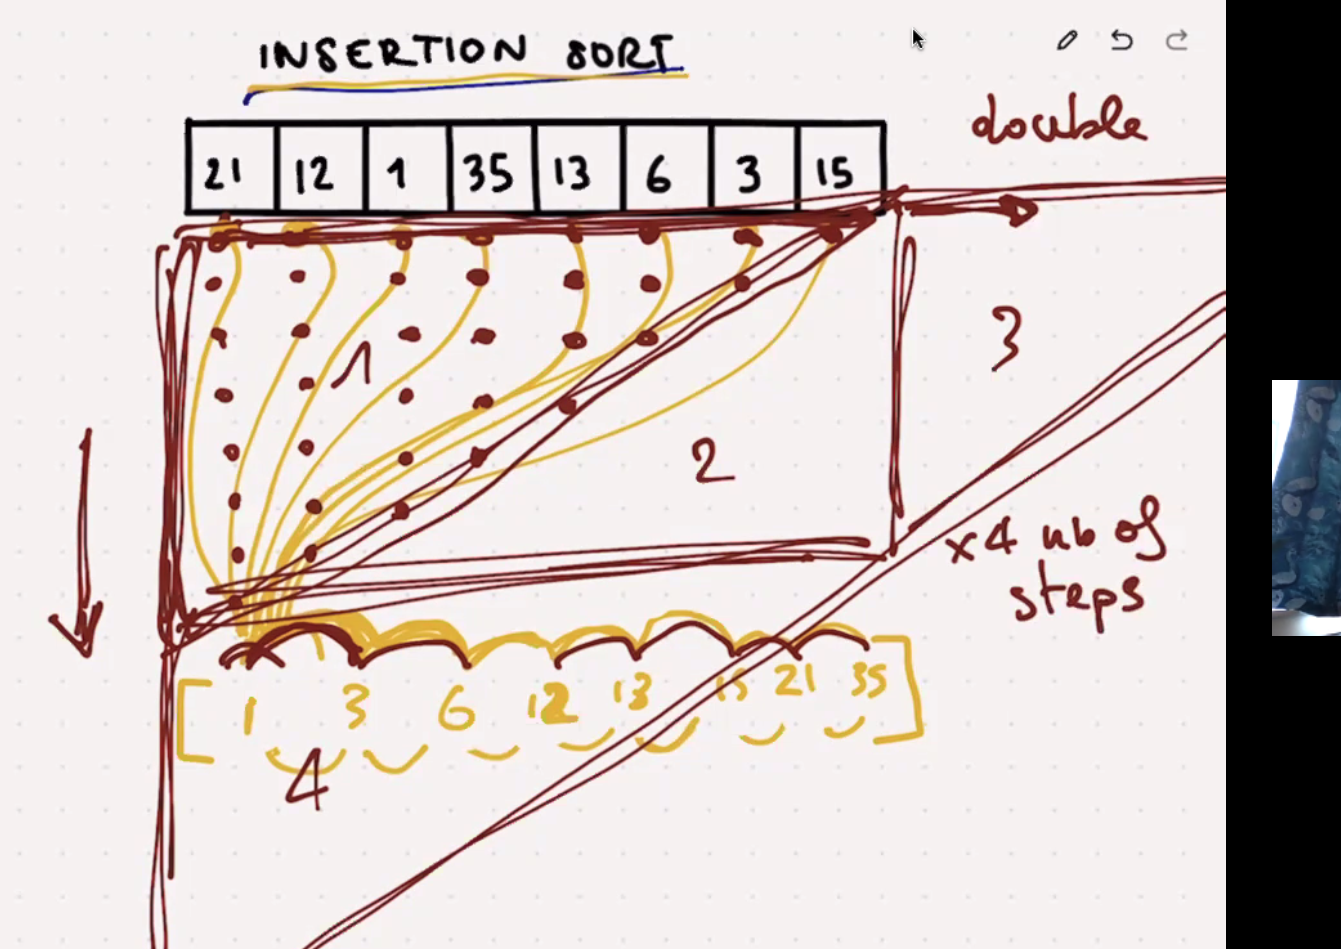 INSERTION SORT
double
21 12 1 35 13 6 3 15
1
3
2
x4 nb of
steps
[ 1 3 6 12 13 15 21 35 ]
4